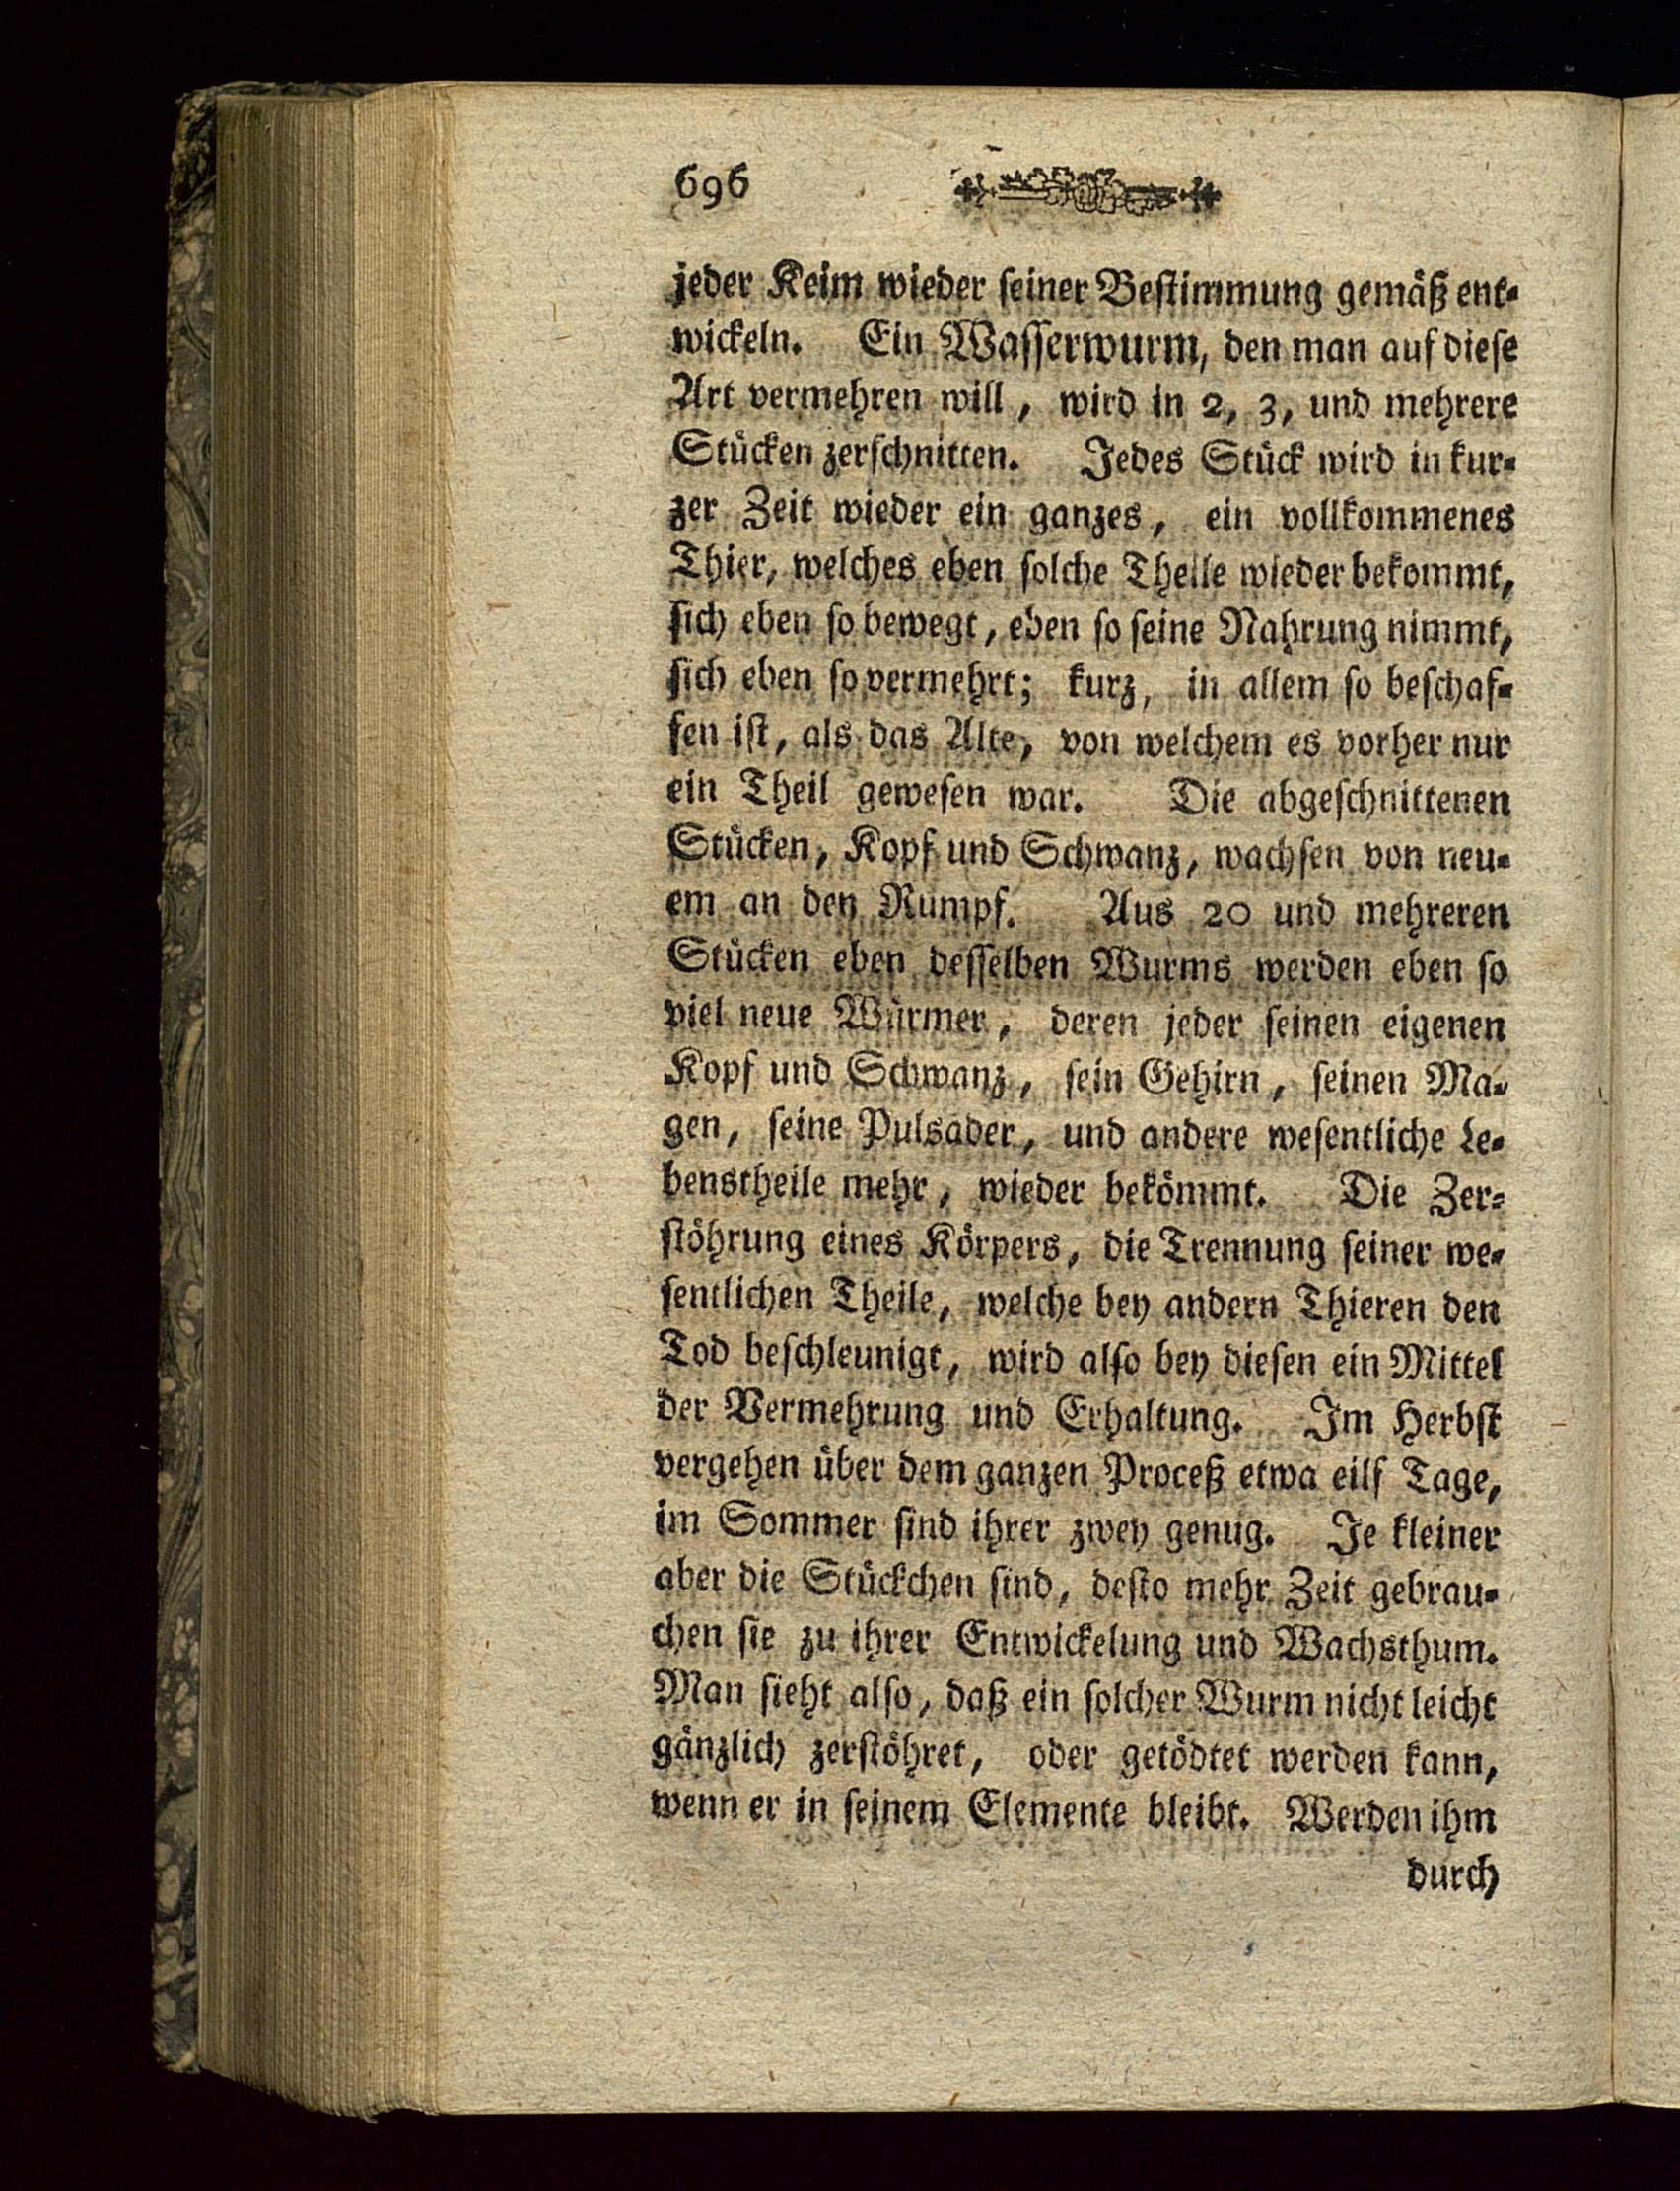 696
jeder Keim wieder seiner Bestimmung gemäß ent-
wickeln. Ein Wasserwurm, den man auf diese
Art vermehren will, wird in 2, 3, und mehrere
Stücken zerschnitten. Jedes Stück wird in kur-
zer Zeit wieder ein ganzes, ein vollkommenes
Thier, welches eben solche Theile wieder bekommt,
sich eben so bewegt, eben so seine Nahrung nimmt,
sich eben so vermehrt; kurz, in allem so beschaf-
fen ist, als das Alte, von welchem es vorher nur
ein Theil gewesen war. Die abgeschnittenen
Stücken, Kopf und Schwanz, wachsen von neu-
em an den Rumpf. Aus 20 und mehreren
Stücken eben desselben Wurms werden eben so
viel neue Würmer, deren jeder seinen eigenen
Kopf und Schwanz, sein Gehirn, seinen Ma-
gen, seine Pulsader, und andere wesentliche Le-
benstheile mehr, wieder bekömmt. Die Zer-
stöhrung eines Körpers, die Trennung seiner we-
sentlichen Theile, welche bey andern Thieren den
Tod beschleunigt, wird also bey diesen ein Mittel
der Vermehrung und Erhaltung. Im Herbst
vergehen über dem ganzen Proceß etwa eilf Tage,
im Sommer sind ihrer zwey genug. Je kleiner
aber die Stückchen sind, desto mehr Zeit gebrau-
chen sie zu ihrer Entwickelung und Wachsthum.
Man sieht also, daß ein solcher Wurm nicht leicht
gänzlich zerstöhret, oder getödtet werden kann,
wenn er in seinem Elemente bleibt. Werden ihm
durch